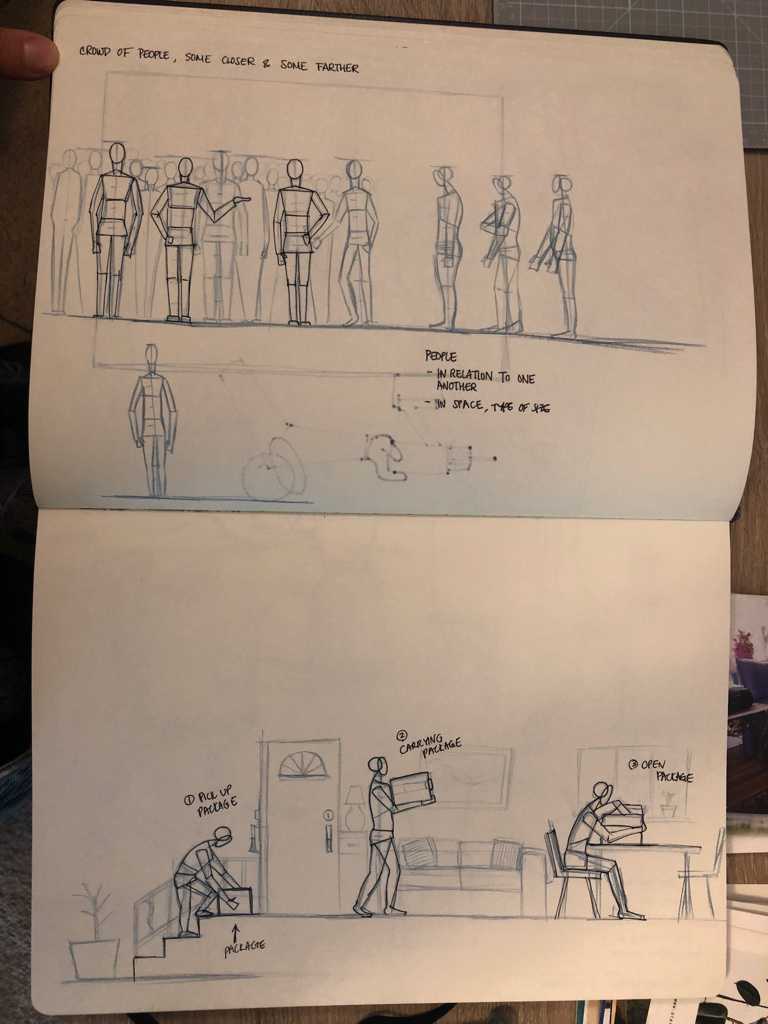 CROWD OF PEOPLE, SOME CLOSER & SOME FARTHER
PEOPLE
- IN RELATION TO ONE
ANOTHER
- IN SPACE, TYPE OF
① PICK UP
PACKAGE
② 
CARRYING
PACKAGE
③ OPEN
PACKAGE
①
PACKAGE